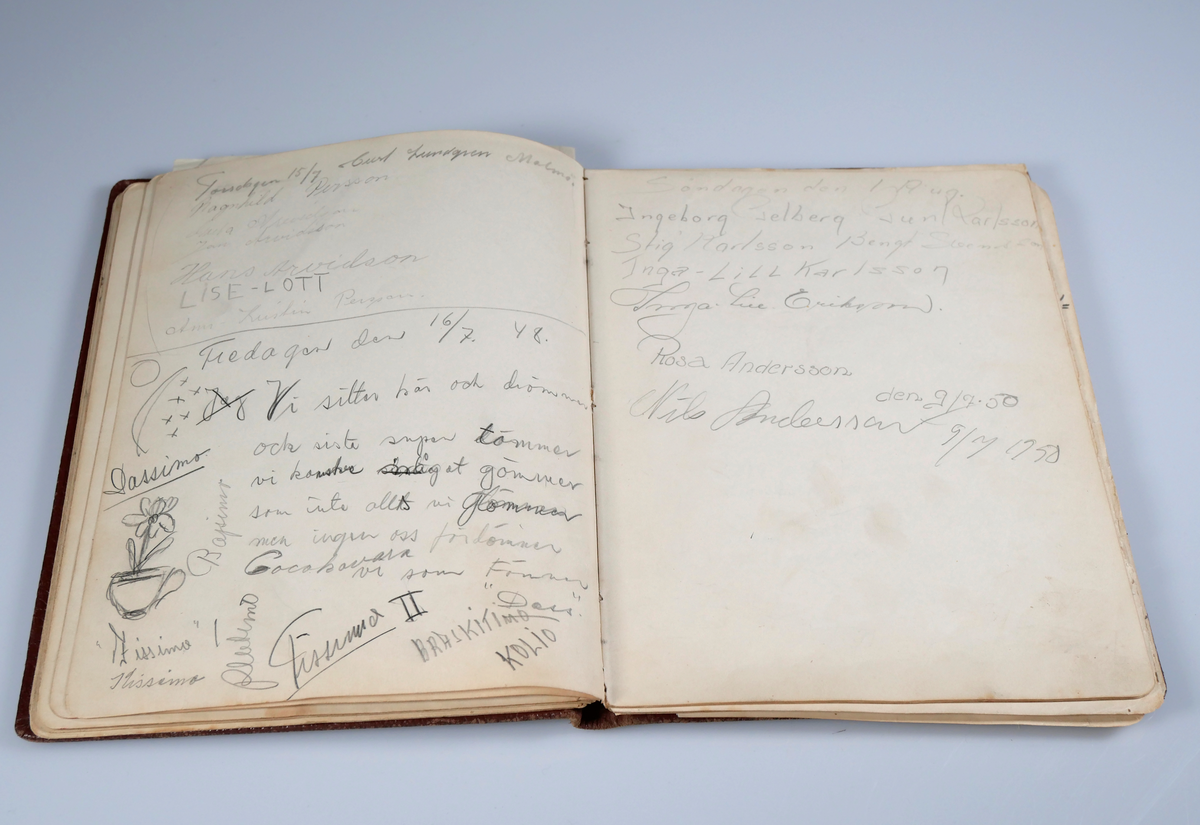 Torsdagen 15/7 Curt Lundgren Malmö.
Ragnhild Persson
Hans Arvidson
LISE-LOTT
Kerstin Persson.
Fredagen den 16/7. 48.
Vi sitter här och drömmer
och siste super tömmer
vi kanske något gömmer
som inte alls vi glömmer
men ingen oss fördömer
Cocokavara
vi som tömmer
"Dass".
Dassimo
Bajsimo
"Fissimo" !
Kissimo
Fissimo II
BAALKITIMO
KOLIO
Söndagen den 1 Aug.
Ingeborg Selberg Gun Karlsson
Stig Karlsson Bengt
Inga-Lill Karlsson
Erikson.
Rosa Andersson
den 9/9-50
Nils Andersson 9/9 1950